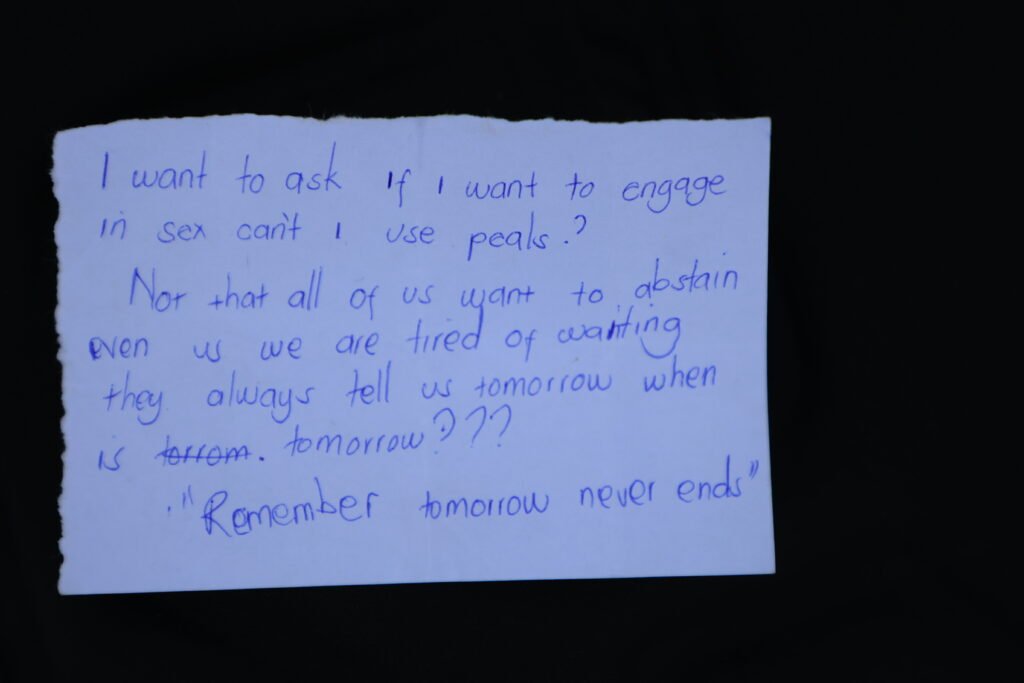 I want to ask If I want to engage
in sex can't I use peals.?
Not that all of us want to abstain
even us we are tired of waiting
they always tell us tomorrow when
is torrom. tomorrow???
."Remember tomorrow never ends"